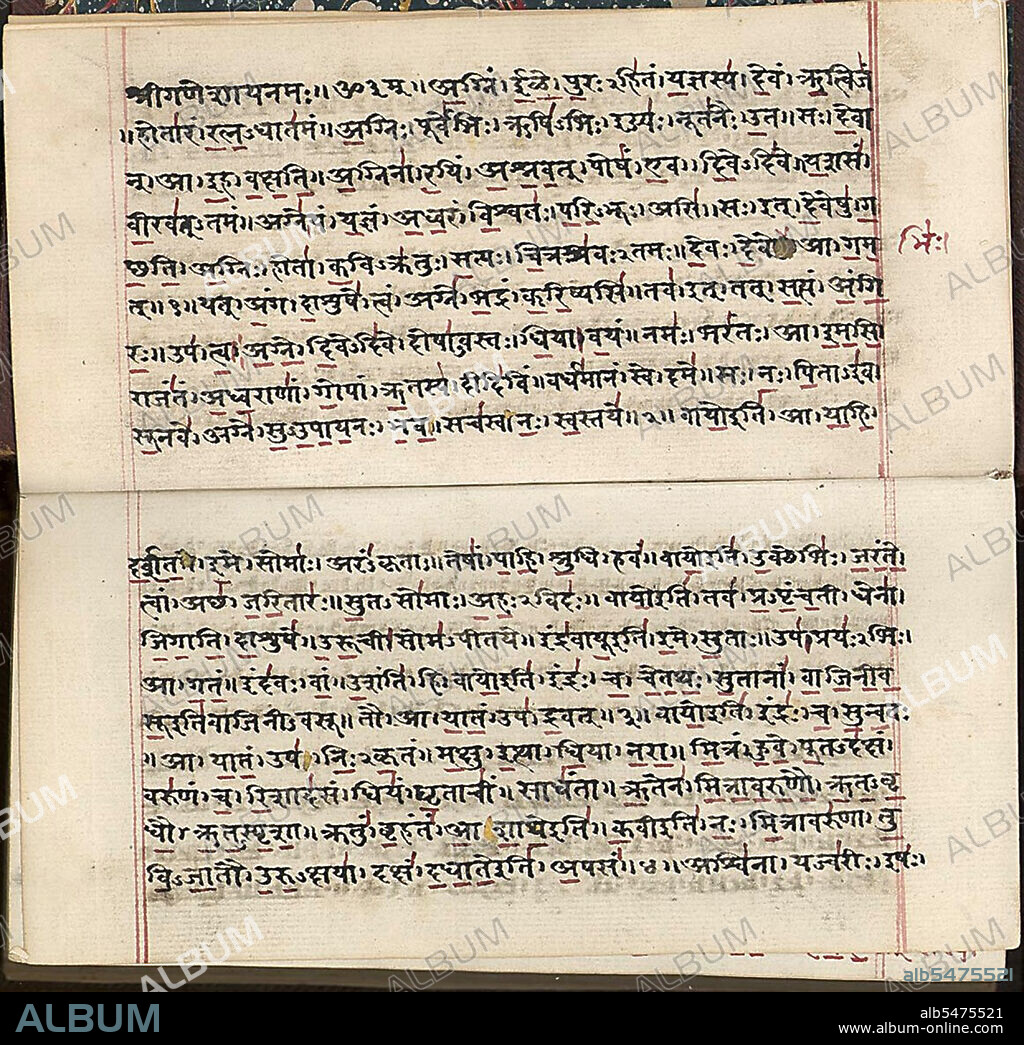 श्रीगणेशायनमः॥ॐ३म्॥अग्निं।ईळे।पुरःऽहितं।यज्ञस्य।देवं।ऋत्विजं
॥होतारं।रत्नऽधातमं॥अग्निः।पूर्वेभिः।ऋषिऽभिः।ईड्यः।नूतनैः।उत॥सः।देवा
न्।आ।इह।वक्षति॥अग्निना।रयिं।अश्नवत्।पोषं।एव।दिवेऽदिवे॥यशसं
वीरवत्ऽतमं॥अग्ने।यं।यज्ञं।अध्वरं।विश्वतः।परिऽभूः।असि॥सः।इत्।देवेषु।ग
च्छति।अग्निः।होता।कविऽक्रतुः।सत्यः।चित्रश्रवःऽतमः॥देवः।देवे।आ।गम
भिः।
त्॥१॥यत्।अंग।दाशुषे।त्वं।अग्ने।भद्रं।करिष्यसि॥तव।इत्।तत्।सत्यं।अंगि
रः॥उप।त्वा।अग्ने।दिवेऽदिवे।दोषाऽवस्तः।धिया।वयं॥नमः।भरंतः।आ।इमसि
राजंतं।अध्वराणां।गोपां।ऋतस्य।दीदिविं॥वर्धमानं।स्वे।दमे॥सः।नः।पिताऽइव
सूनवे।अग्ने।सुऽउपायनः।भव॥सचस्व।नः।स्वस्तये॥२॥वायोइति।आ।याहि
दर्शत।इमे।सोमाः।अरंऽकृताः॥तेषां।पाहि।श्रुधि।हवं॥वायोइति।उक्थेभिः।जरंते
त्वां।अच्छ।जरितारः॥सुतऽसोमाः।अहःऽविदः॥वायोइति।तव।प्रऽपृंचती।धेना
जिगाति।दाशुषे॥उरूची।सोमऽपीतये॥इंद्रवायूइति।इमे।सुताः॥उप।प्रयःऽभिः।
आ।गतं॥इंदवः।वां।उशंति।हि॥वायोइति।इंद्रः।च।चेतथः।सुतानां।वाजिनीव
सूइतिवाजिनीऽवसू॥तौ।आ।यातं।उप।द्रवत्॥३॥वायोइति।इंद्रः।च।सुन्वतः
॥आ।यातं।उप।निःऽकृतं॥मक्षु।इत्था।धिया।नरा॥मित्रं।हुवे।पूतऽदक्षं
वरुणं।च।रिशादसं॥धियं।घृताचीं।साधंता॥ऋतेन।मित्रावरुणौ।ऋतऽवृ
धौ।ऋतऽस्पृशा॥क्रतुं।बृहंतं।आशाथेइति॥कवीइति।नः।मित्रावरुणा।तु
विऽजातौ।उरुऽक्षया।दक्षं।दधातेइति।अपसं॥४॥अश्विना।यज्वरीः।इषः।
ALBUM
alb5475521
ALBUM
alb5475521
www.album-online.com